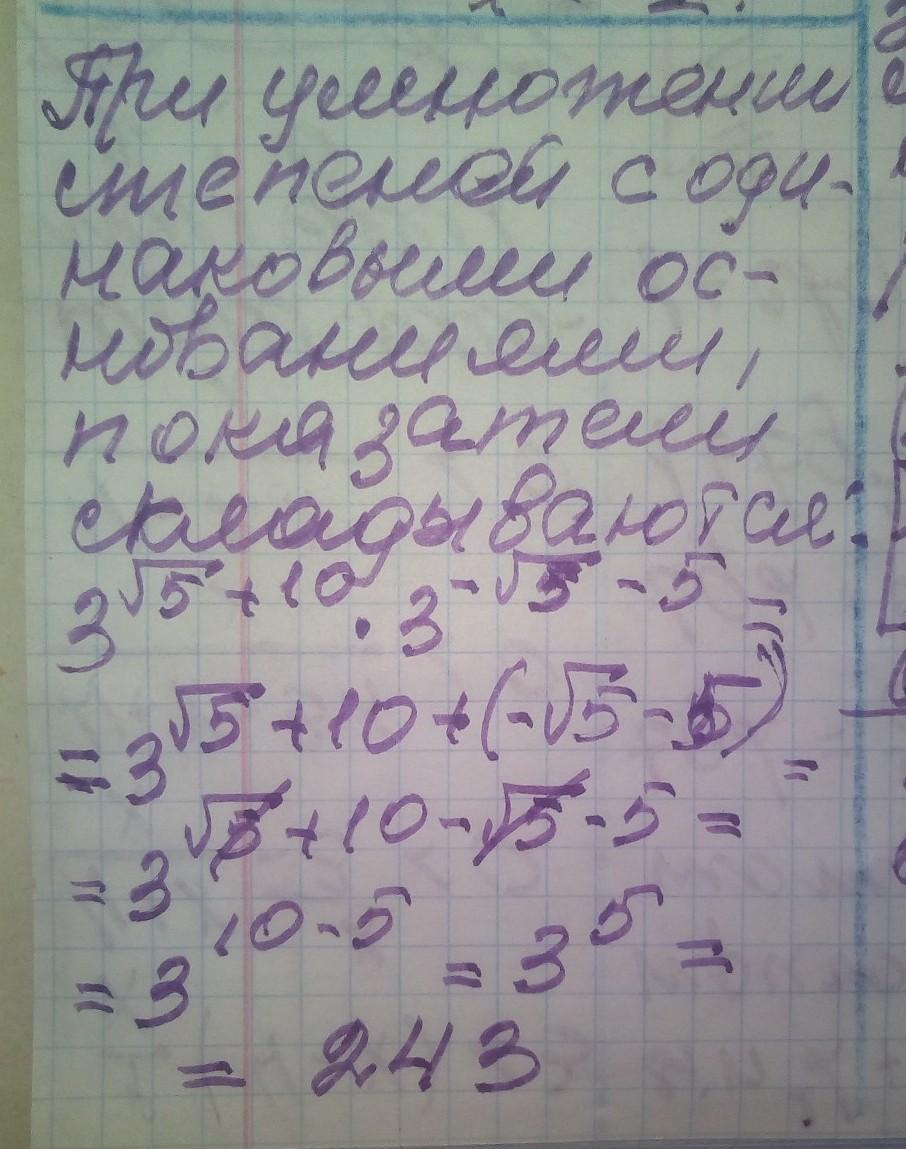 При умножении
степеней с оди-
наковыми ос-
нованиями,
показатели
складываются:
3^{√5+10} · 3^{-√5-5} =
= 3^{√5+10+(-√5-5)} =
= 3^{√5+10-√5-5} =
= 3^{10-5} = 3^5 =
= 243